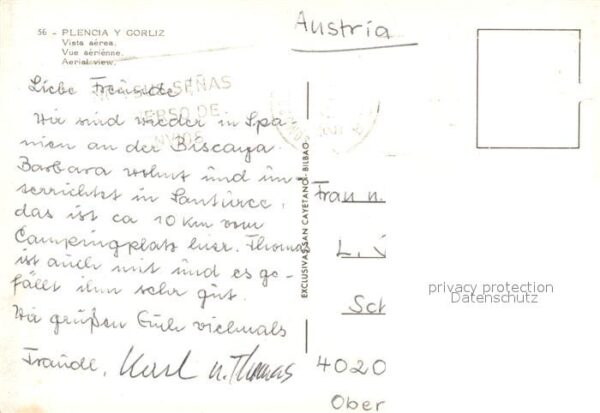 56 - PLENCIA Y GORLIZ
Vista aérea.
Vue aériénne.
Aerial view.
Austria
SEÑAS
ERSO DE
Liebe Freunde!
Wir sind wieder in Spa-
nien an der Biscaya.
Barbara wohnt und un-
terrichtet in Santurce,
das ist ca 10 km vom
Campingplatz hier. Thomas
ist auch mit und es ge-
fällt ihm sehr gut.
Wir grüßen Euch vielmals
Traude, Karl u. Thomas
EXCLUSIVAS SAN CAYETANO - BILBAO
Frau u.
L.
Sch
4020
Ober
privacy protection
Datenschutz